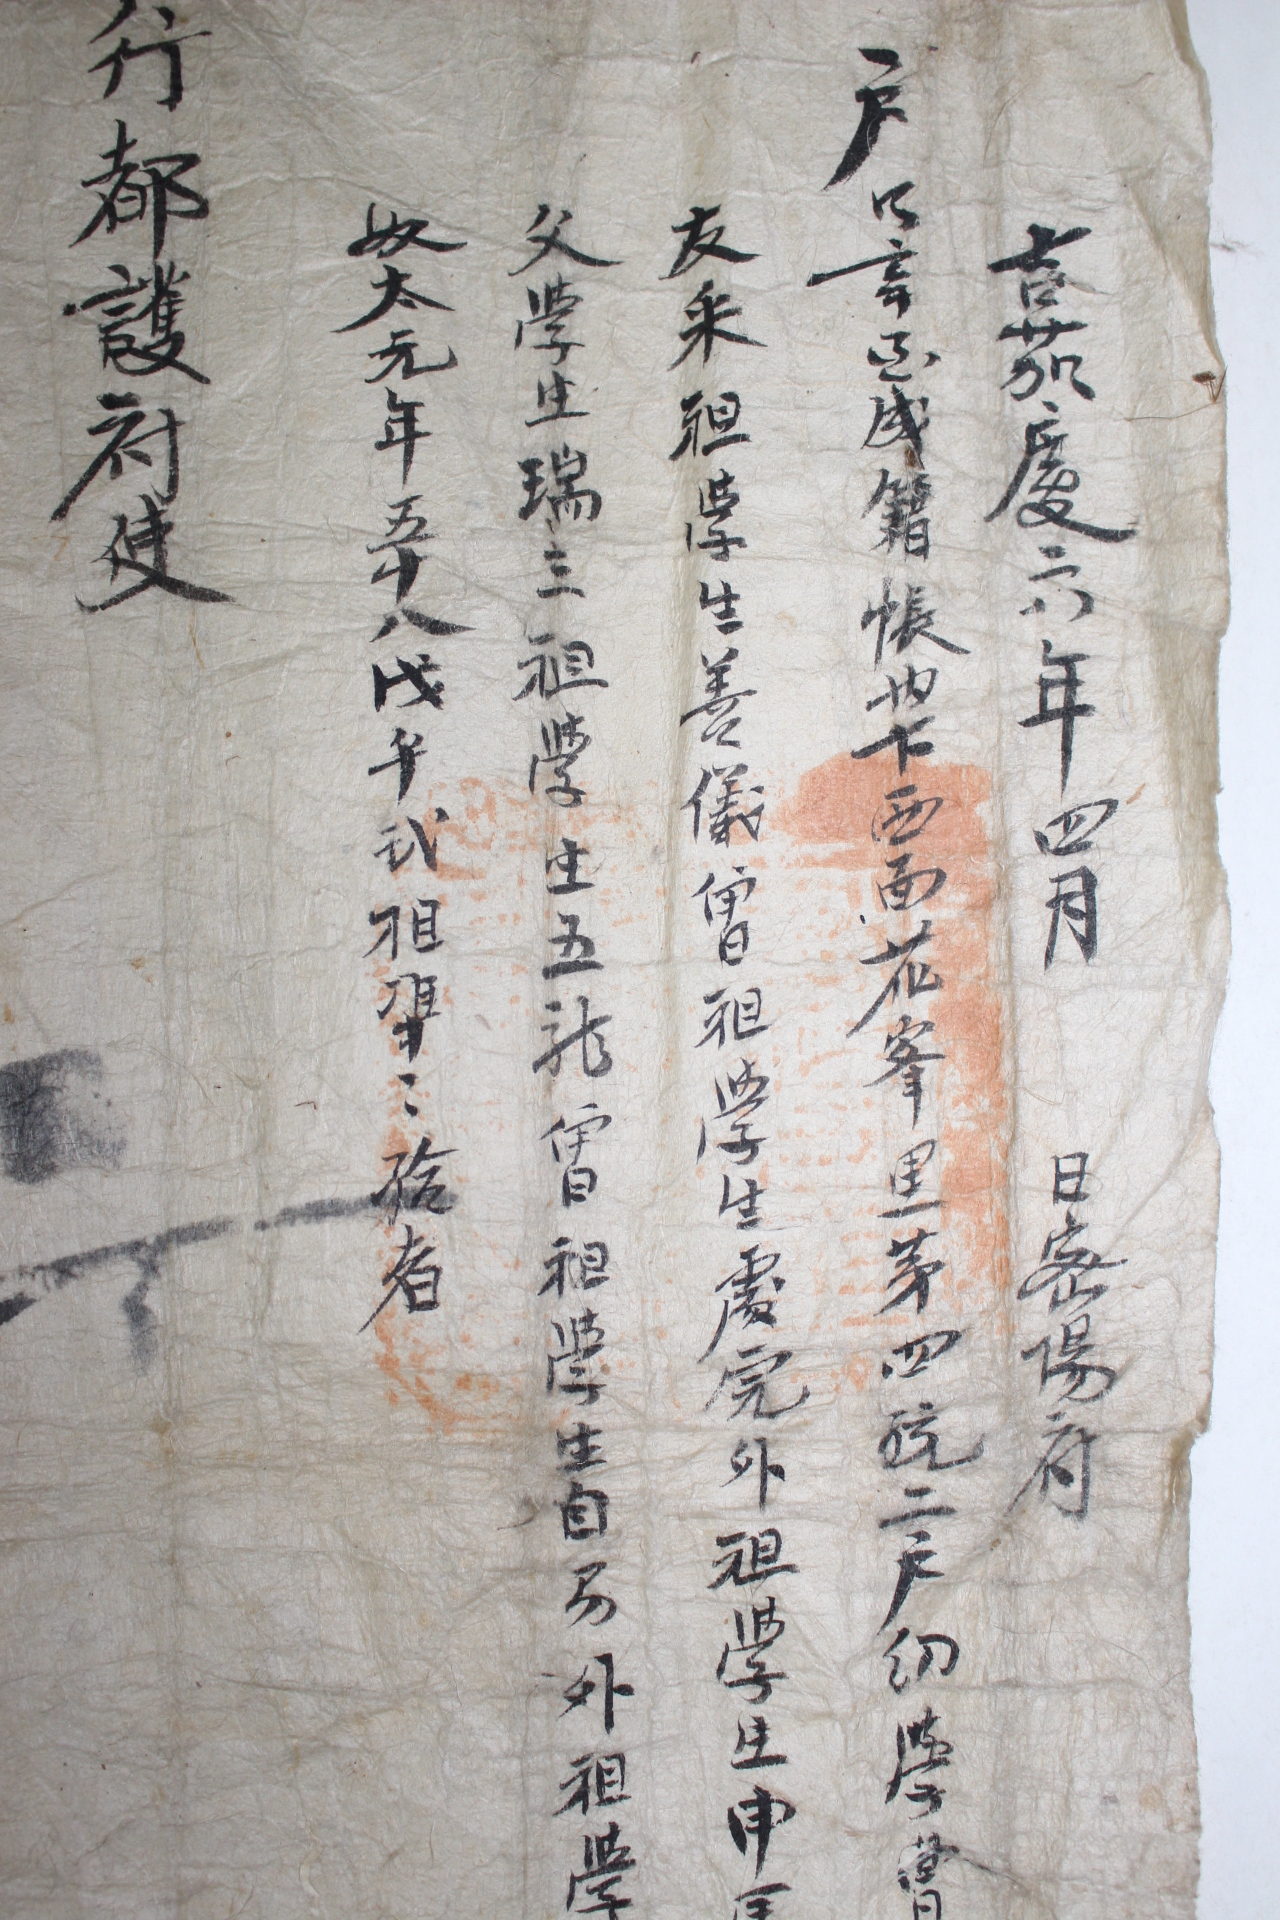 嘉慶六年四月 日密陽府
戶口辛酉成籍帳內下西面花峯里第四統二戶幼學曺
友采祖學生善儀曾祖學生處完外祖學生申
父學生瑞三祖學生五龍曾祖學生自易外祖學
奴太元年五十八戊午式祖
行都護府使